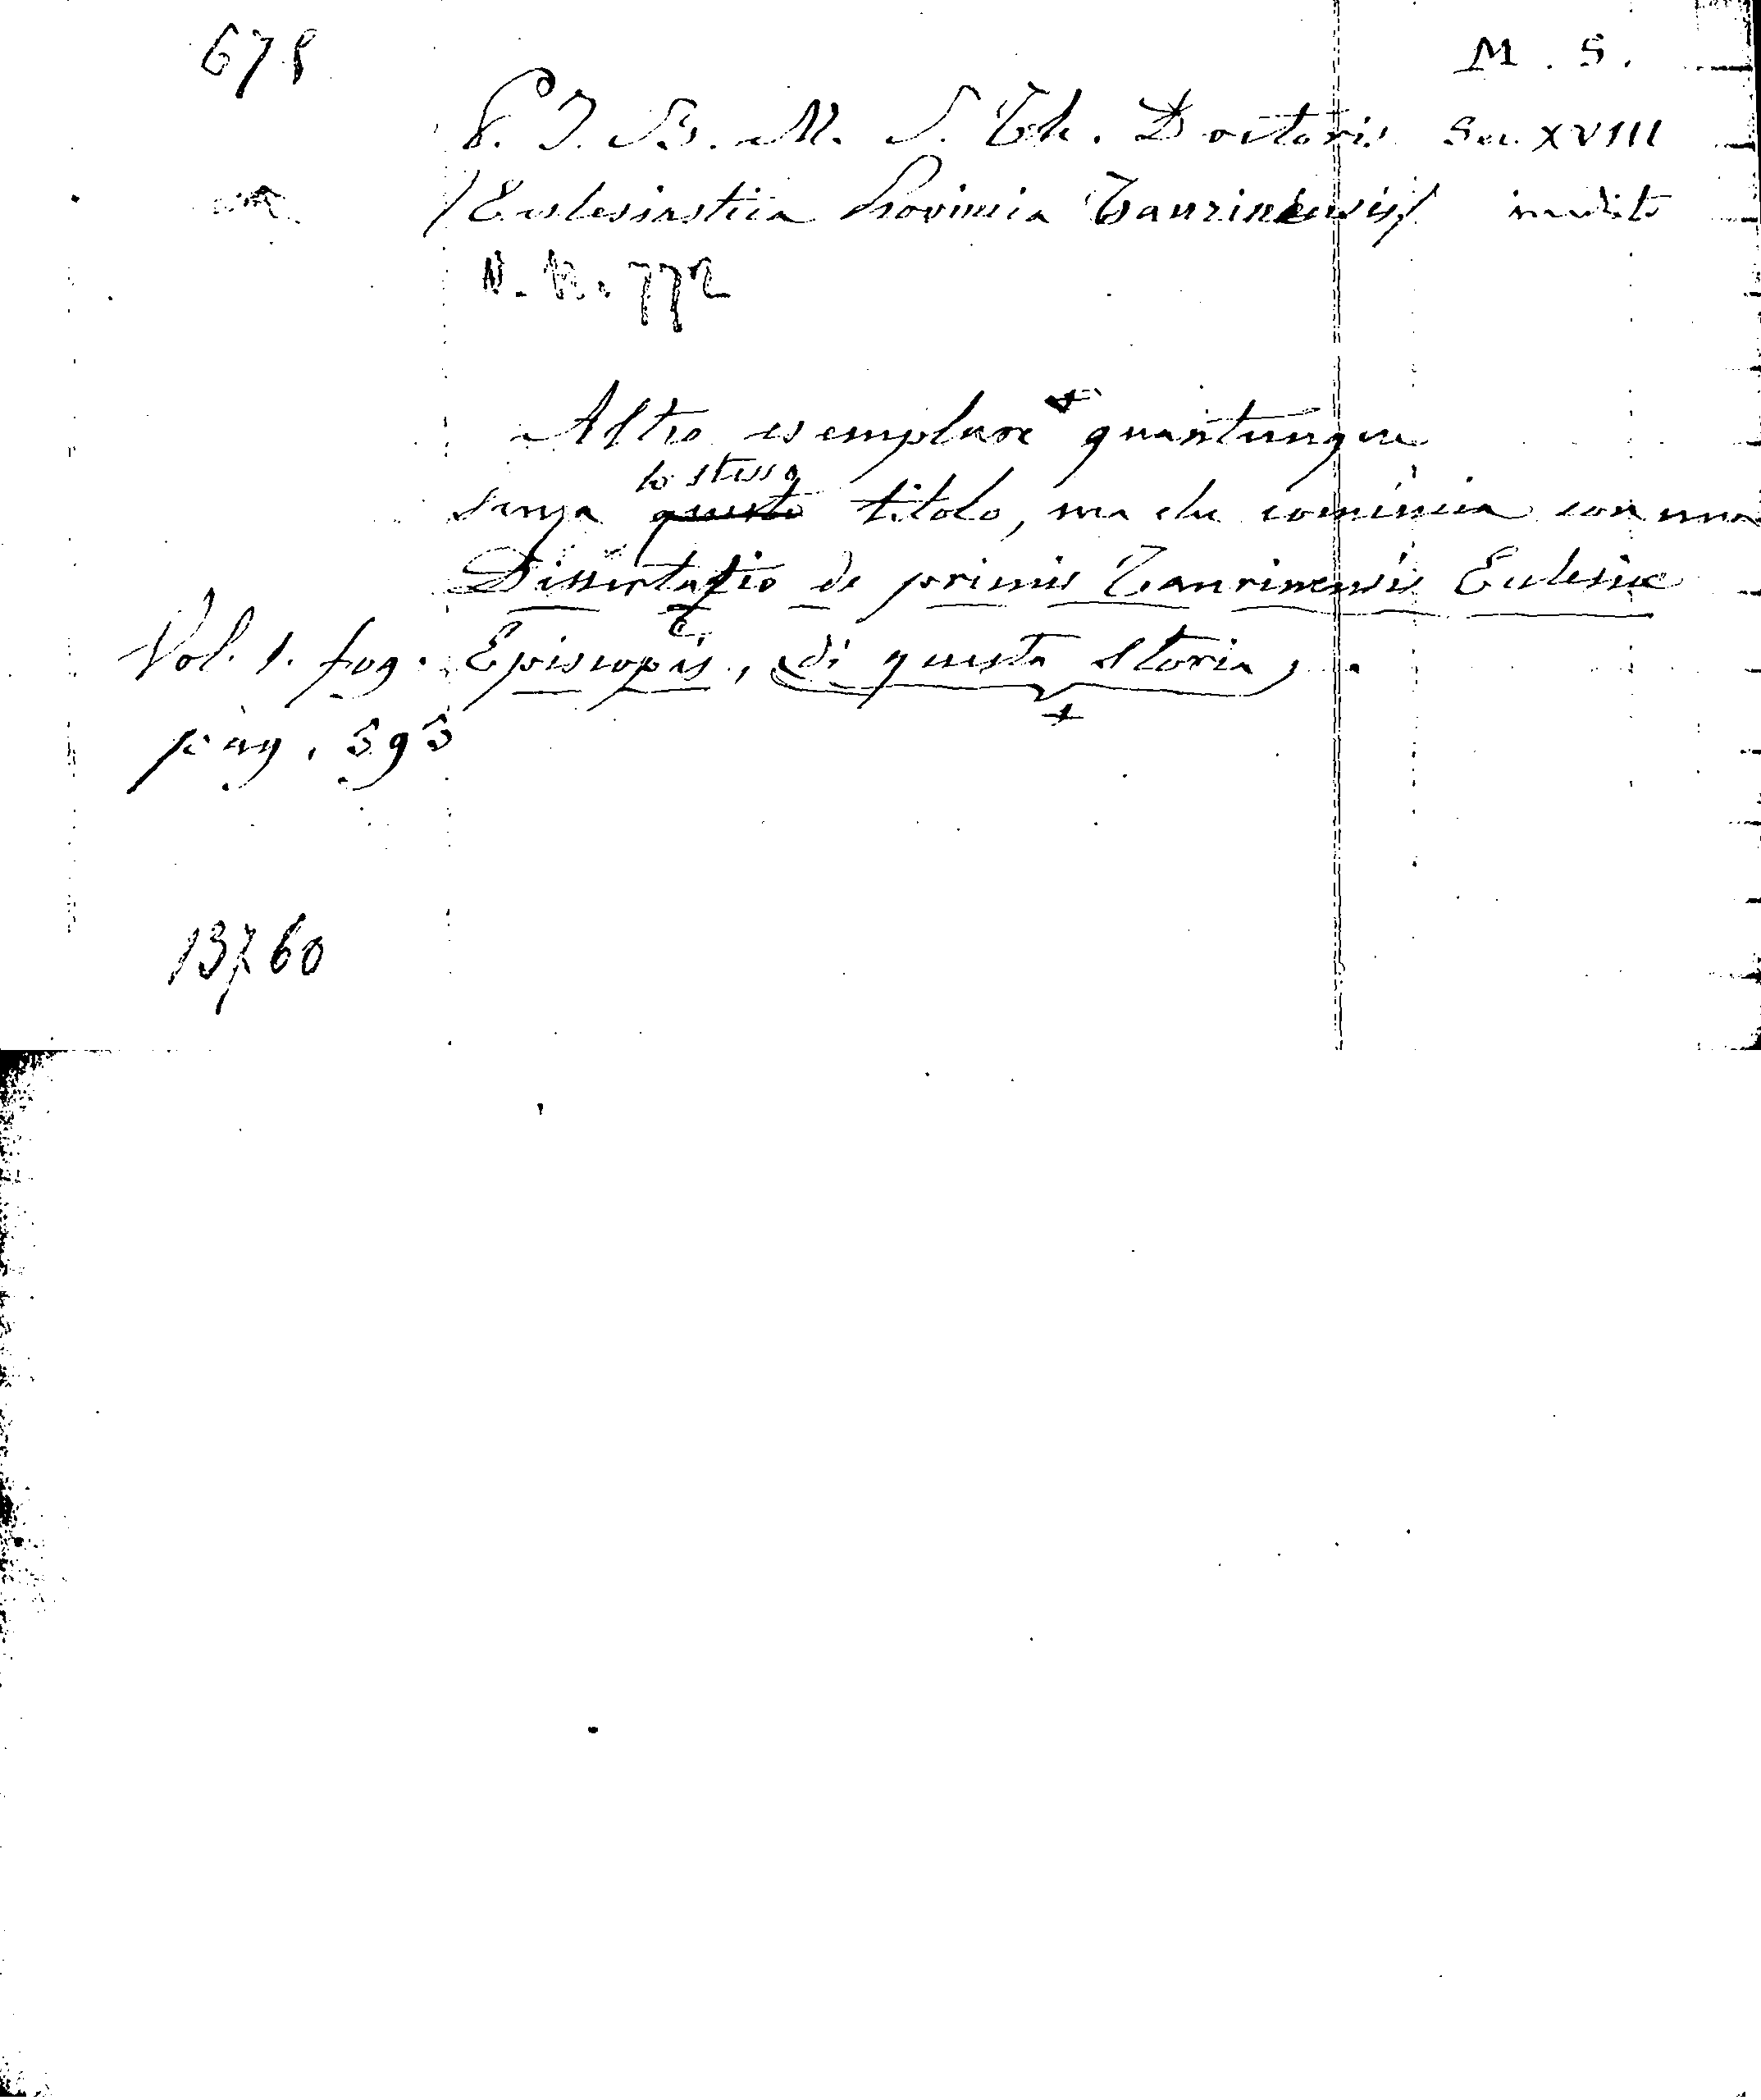 678
M. S.
P. J. B. M. S. Th. Doctoris Sec. XVIII
Ecclesiastica Provincia Taurinensis inedito
772
Altro esemplare quantunque
lo stesso
senza questo titolo, ma che comincia con una
Dissertatio de primis Taurinensis Ecclesiae
Vol. 1. fog. Episcopis, di questa storia
pag. 593
13760